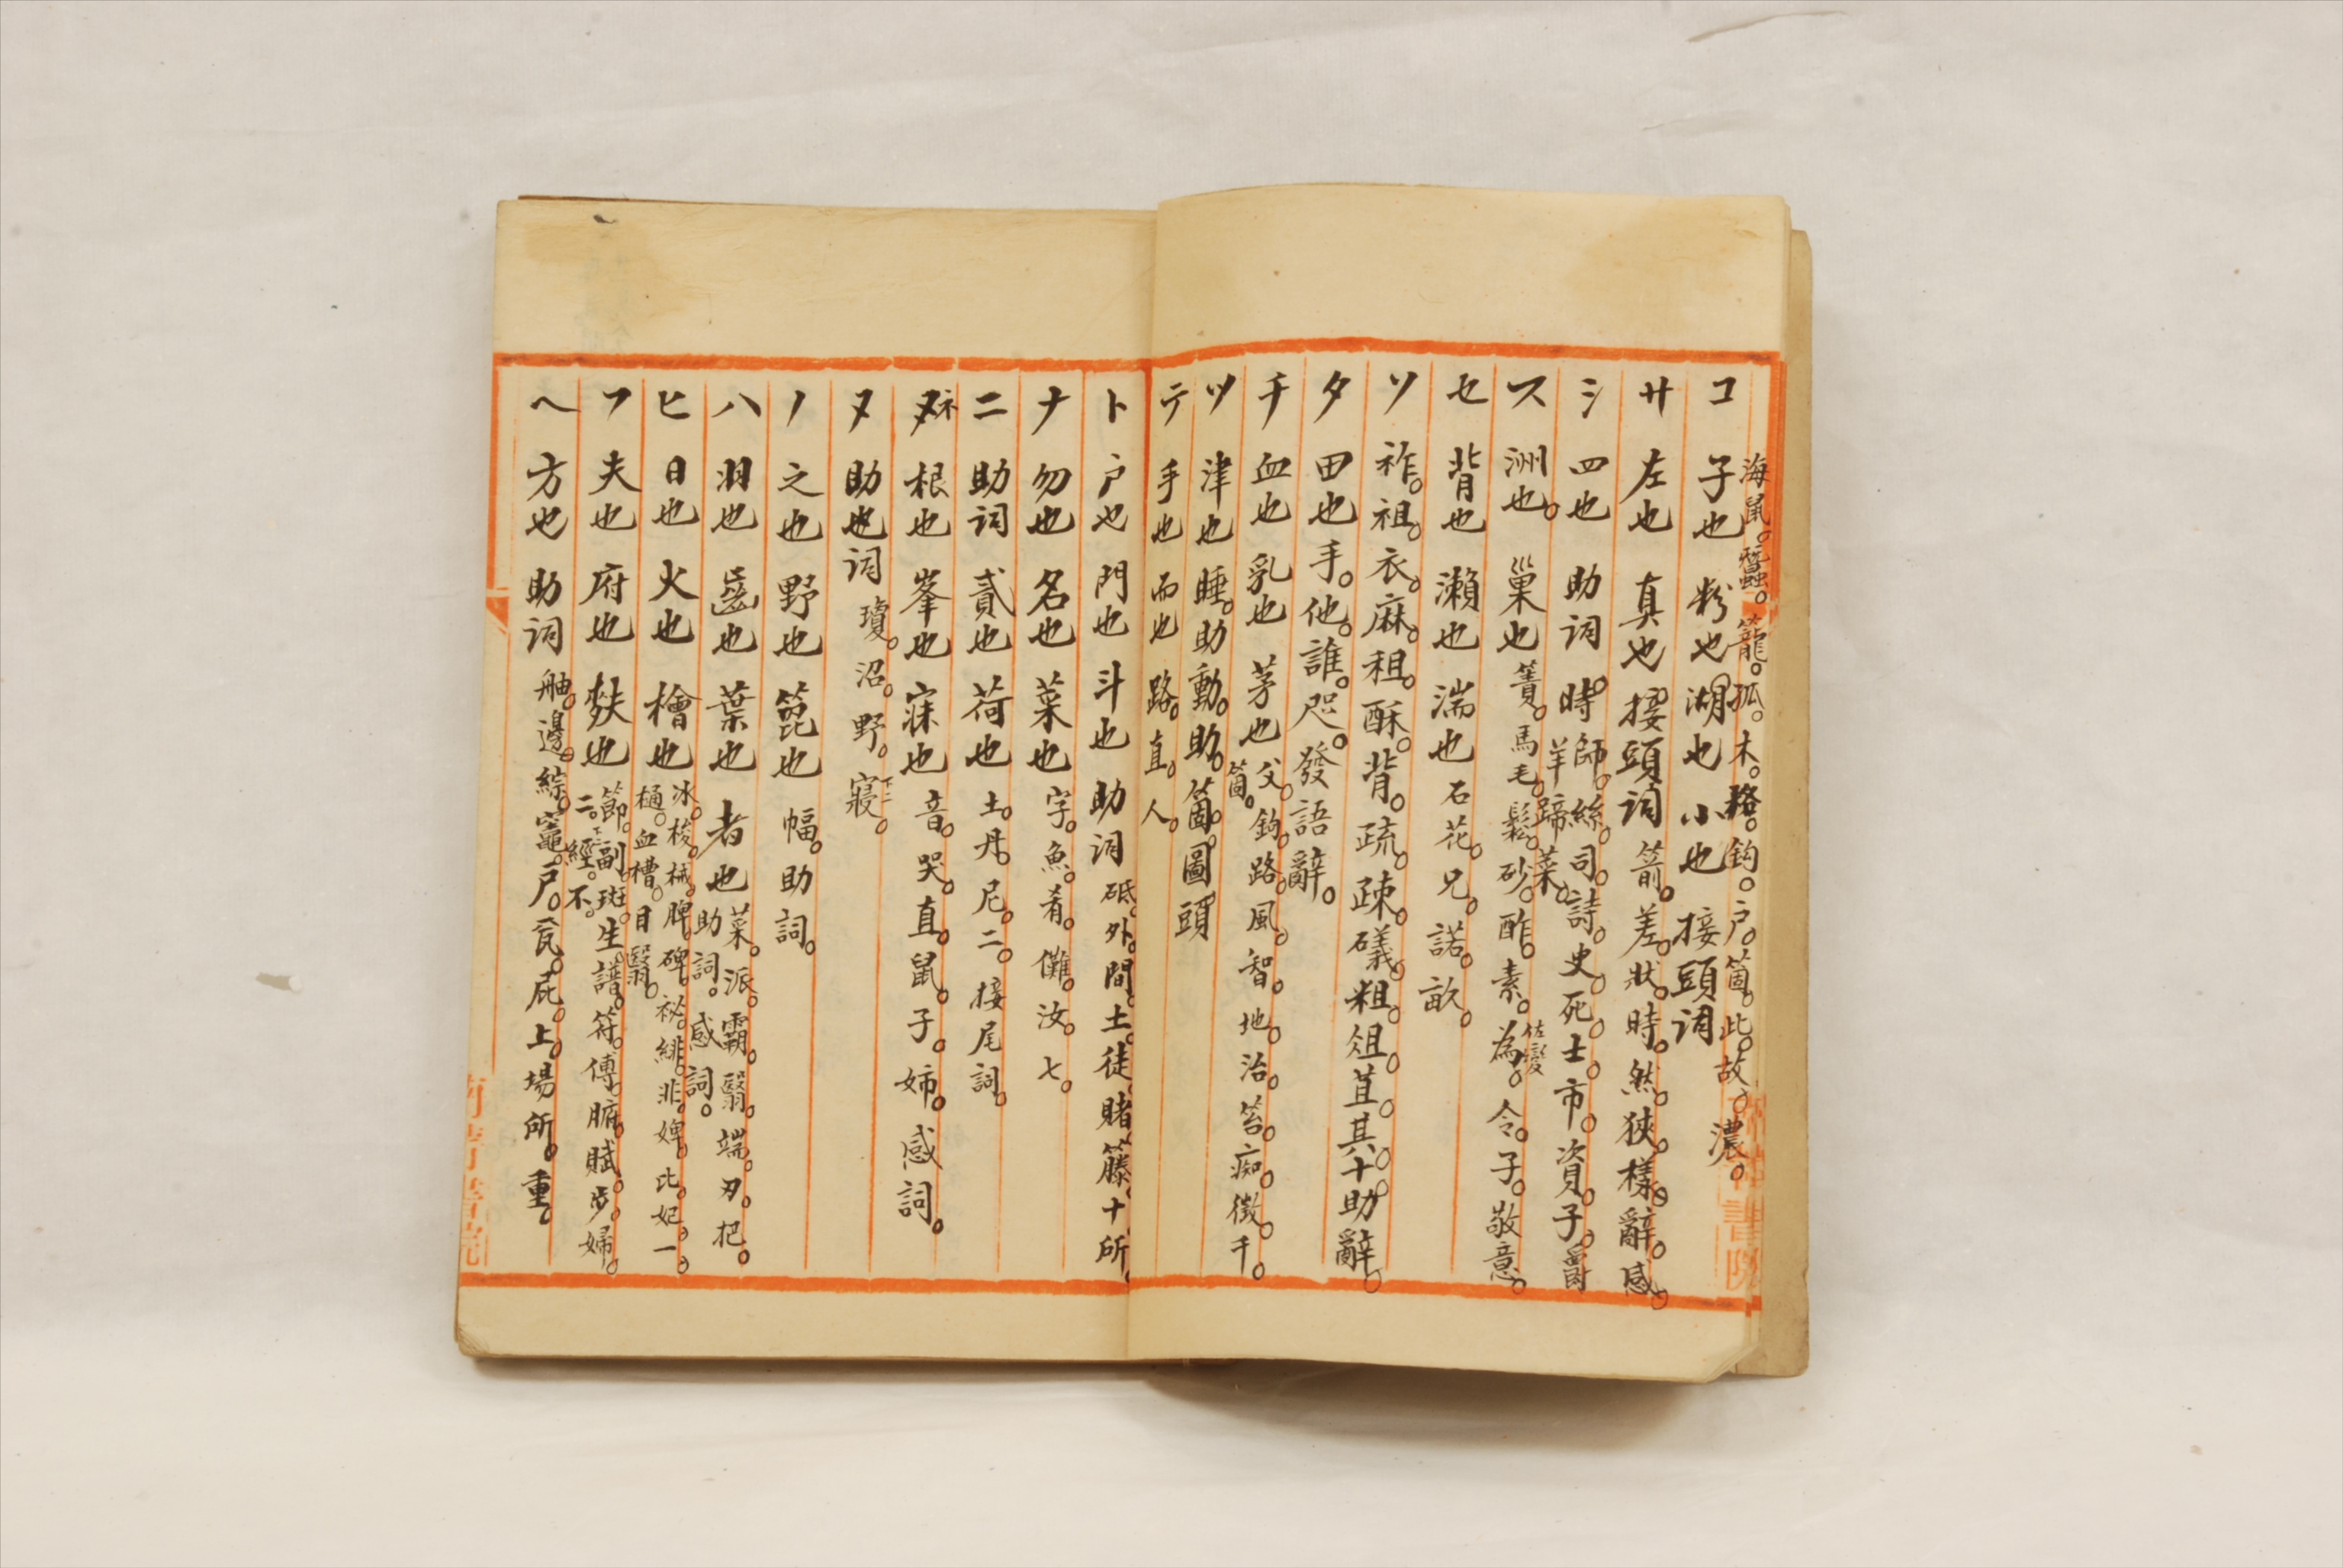 海鼠。蠶。籠。孤。木。格。鈎。戶。箇。此。故。濃。
コ 子也 粉也 湖也 小也 接頭詞
サ 左也 真也 接頭詞 箭。差。狀。時。然。狹。樣。辭。感。
シ 四也 助詞 時 師。絲。司。詩。史。死。士。市。資。子。爵
羊蹄菜。
ス 洲也。巢也 簀。馬毛。鬆。砂。酢。素。為。令。子。敬意。
佐變
セ 背也 瀨也 湍也 石花。兄。諾。畝。
ソ 祚。祖。衣。麻。租。酥。背。疏。疎。礒。粗。俎。苴。其。十。助辭。
タ 田也 手。他。誰。咫。發語辭。
チ 血也 乳也 茅也 父。鈎。路。風。智。地。治。笞。痴。徵。千。
箇。
ツ 津也 睡。助動。助。箇。圖。頭
テ 手也 而也 路。直。人。
ト 戶也 門也 斗也 助詞 砥。外。間。土。徒。賭。籐。十。所。
ナ 勿也 名也 菜也 字。魚。肴。儺。汝。七。
ニ 助詞 貳也 荷也 土。丹。尼。二。接尾詞。
ネ 根也 峯也 寐也 音。哭。直。鼠。子。姉。感詞。
ヌ 助也詞 瓊。沼。野。寢。
下二
ノ 之也 野也 箆也 幅。助詞。
ハ 羽也 齒也 葉也 者也 菜。派。霸。翳。端。刃。把。
助詞。感詞。
ヒ 日也 火也 檜也 冰。梭。械。脾。碑。祕。緋。非。婢。比。妃。一。
樋。血。槽。目翳。
フ 夫也 府也 麩也 節。副。斑。生。譜。符。傅。腑。賦。步。婦。
二。經。不。
ヘ 方也 助詞 舳。邊。綜。竈。戶。瓮。屁。上。場所。重。